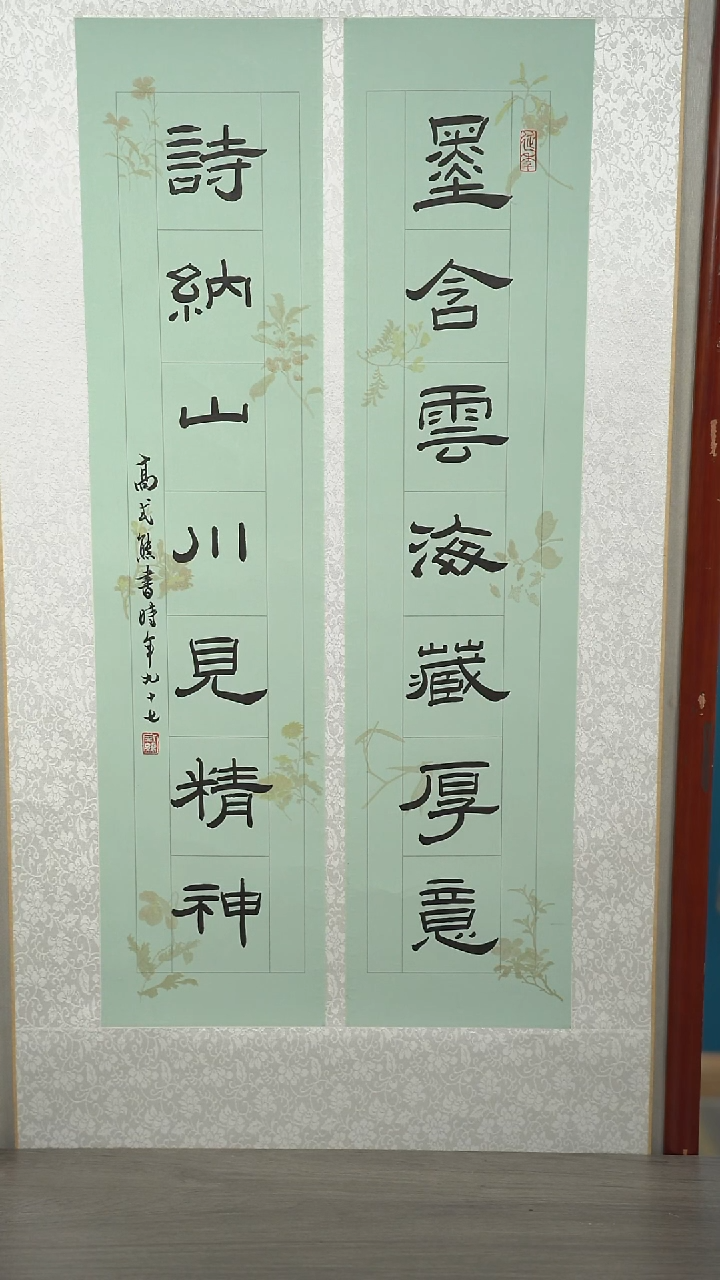 墨含雲海藏厚意
延年
詩納山川見精神
高式熊書時年九十七